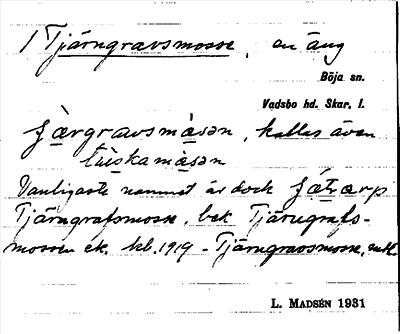 1 Tjärngravsmosse, en äng
Böja sn.
Vadsbo hd. Skar. l.
ʃæ̀rgravsmåsən, kallas även
tùskamåsən
Vanligaste namnet är dock
Tjärngrafsmosse, bek Tjärngrafs-
mossen ek. kb. 1919 - Tjärngravsmosse,
L. MADSÉN 1931